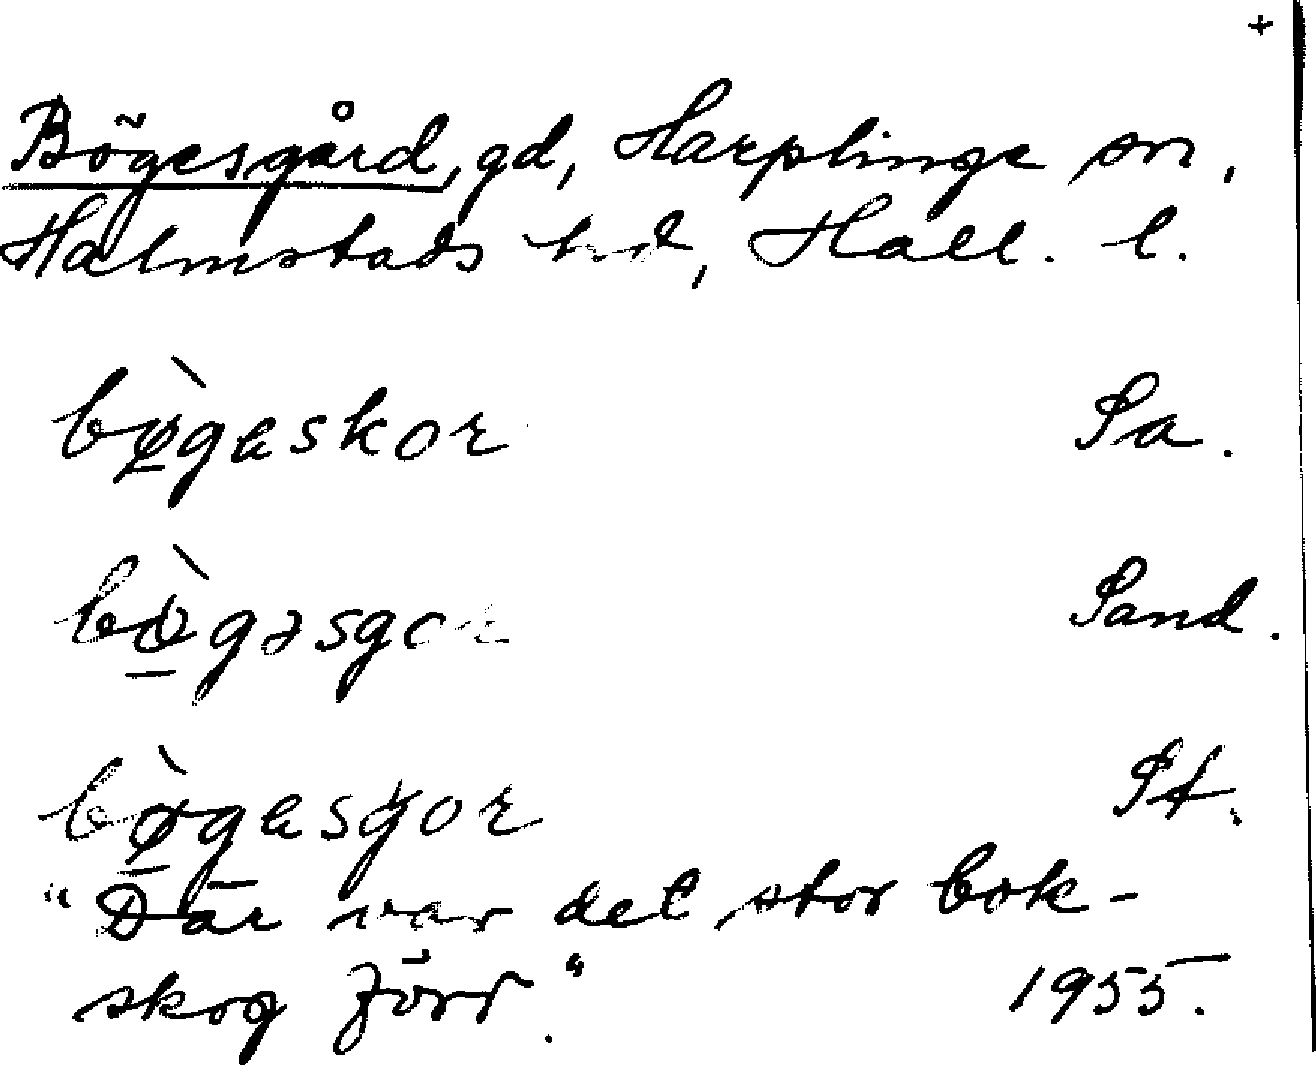 +
Bögesgård, gd, Harplinge sn,
Halmstads hd, Hall. l.
bø̲̀gaskor Sa.
bø̲̀gəsgor Sand.
bø̲̀gasgor St.
"Där var det stor bok-
skog förr." 1955.